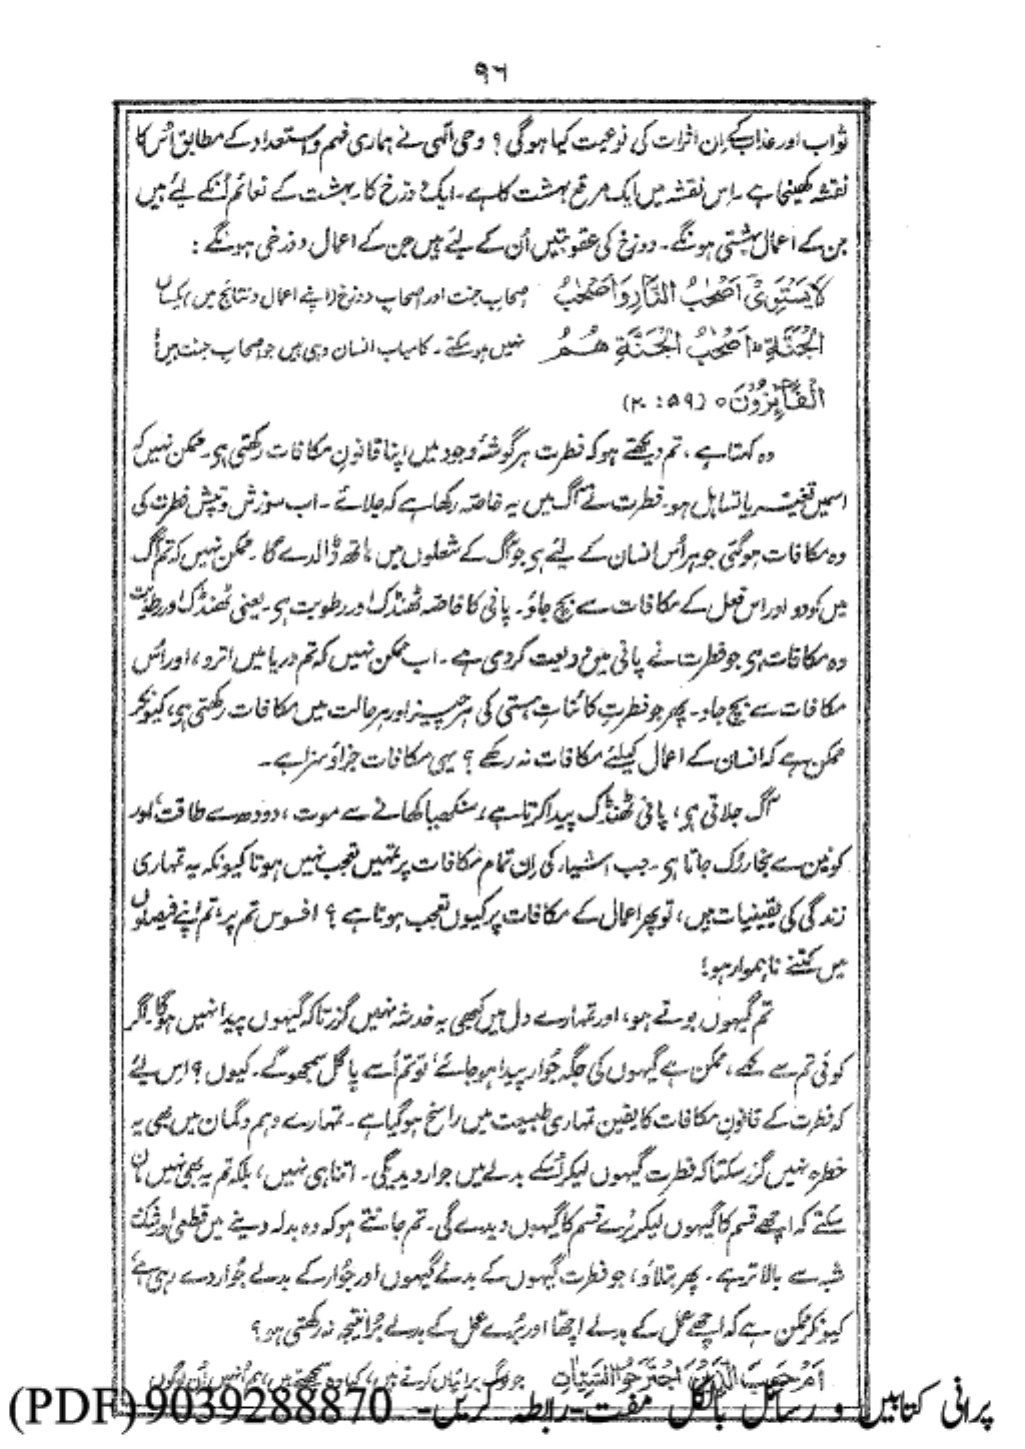 ۹۶
ثواب اور عذاب کے اِن اثرات کی نوعیت کیا ہوگی؟ وحی الٰہی نے ہماری فہم و استعداد کے مطابق اُس کا
نقشہ کھینچا ہے۔ اس نقشہ میں ایک مرقع بہشت کا ہے۔ ایک دوزخ کا۔ بہشت کے نعائم اُنکے لئے ہیں
جن کے اعمال بہشتی ہونگے۔ دوزخ کی عقوبتیں اُن کے لئے ہیں جن کے اعمال دوزخی ہونگے:
لَا يَسْتَوِىْٓ اَصْحٰبُ النَّارِ وَاَصْحٰبُ اصحاب جنت اور اصحاب دوزخ (اپنے اعمال و نتائج میں) یکساں
الْجَنَّةِ ؕ اَصْحٰبُ الْجَنَّةِ هُمُ نہیں ہوسکتے۔ کامیاب انسان وہی ہیں جو اصحاب جنت ہیں!
الْفَآئِزُوْنَ ○ (۵۹: ۲۰)
وہ کہتا ہے، تم دیکھتے ہو کہ فطرت ہر گوشۂ وجود میں اپنا قانونِ مکافات رکھتی ہی۔ ممکن نہیں کہ
اسمیں تغیر یا تساہل ہو۔ فطرت نے آگ میں یہ خاصہ رکھا ہے کہ جلائے۔ اب سوزش و تپش فطرت کی
وہ مکافات ہوگئی جو ہر اُس انسان کے لئے ہی جو آگ کے شعلوں میں ہاتھ ڈالدے گا۔ ممکن نہیں کہ تم آگ
میں کودو اور اس فعل کے مکافات سے بچ جاؤ۔ پانی کا خاصہ ٹھنڈک اور رطوبت ہی۔ یعنی ٹھنڈک اور رطوبت
وہ مکافات ہی جو فطرت نے پانی میں ودیعت کردی ہے۔ اب ممکن نہیں کہ تم دریا میں اترو، اور اُس
مکافات سے بچ جاؤ۔ پھر جو فطرت کائناتِ ہستی کی ہر چیز اور ہر حالت میں مکافات رکھتی ہی، کیونکر
ممکن ہے کہ انسان کے اعمال کیلئے مکافات نہ رکھے؟ یہی مکافات جزاؤ سزا ہے۔
آگ جلاتی ہی، پانی ٹھنڈک پیدا کرتا ہے، سنکھیا کھانے سے موت، دودھ سے طاقت، اور
کونین سے بخار رُک جاتا ہی۔ جب اشیاء کی اِن تمام مکافات پر تمہیں تعجب نہیں ہوتا کیونکہ یہ تمہاری
زندگی کی یقینیات ہیں، تو پھر اعمال کے مکافات پر کیوں تعجب ہوتا ہے؟ افسوس تم پر، تم اپنے فیصلوں
میں کتنے ناہموار ہو!
تم گیہوں بوتے ہو، اور تمہارے دل میں کبھی یہ خدشہ نہیں گزرتا کہ گیہوں پیدا نہیں ہوگا۔ اگر
کوئی تم سے کہے، ممکن ہے گیہوں کی جگہ جُوار پیدا ہو جائے، تو تم اُسے پاگل سمجھوگے۔ کیوں؟ اِس لئے
کہ فطرت کے قانونِ مکافات کا یقین تمہاری طبیعت میں راسخ ہوگیا ہے۔ تمہارے وہم و گمان میں بھی یہ
خطرہ نہیں گزر سکتا کہ فطرت گیہوں لیکر اُسکے بدلے میں جوار دیدیگی۔ اتنا ہی نہیں، بلکہ تم یہ بھی نہیں مان
سکتے کہ اچھے قسم کا گیہوں لیکر بُرے قسم کا گیہوں دیدے گی۔ تم جانتے ہو کہ وہ بدلہ دینے میں قطعی اور شک
شبہ سے بالاتر ہے۔ پھر بتلاؤ، جو فطرت گیہوں کے بدلے گیہوں اور جُوار کے بدلے جُوار دے رہی ہے،
کیونکر ممکن ہے کہ اچھے عمل کے بدلے اچھا اور بُرے عمل کے بدلے بُرا نتیجہ نہ رکھتی ہو؟
اَمْ حَسِبَ الَّذِيْنَ اجْتَرَحُوا السَّيِّاٰتِ جو لوگ برائیاں کرتے ہیں، کیا وہ سمجھتے ہیں، ہم اُنہیں اُن لوگوں
پرانی کتابیں و رسائل بالکل مفت۔ رابطہ کریں۔ 9039288870 (PDF)